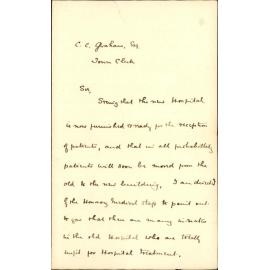 C. C. Graham, Esq
Town Clerk
Sir,
Seeing that the new Hospital
is now furnished & ready for the reception
of patients, and that in all probability
patients will soon be moved from the
old to the new building, I am directed
by the Honorary Medical Staff to point out
to you that there are many inmates
in the old Hospital who are totally
unfit for Hospital Treatment.